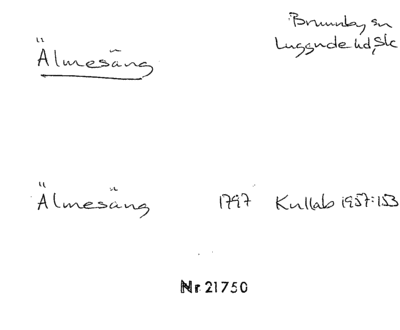 Älmesäng
Brunnby sn
Luggude hd, Sk
Älmesäng 1797 Kullab 1957:153
Nr 21750